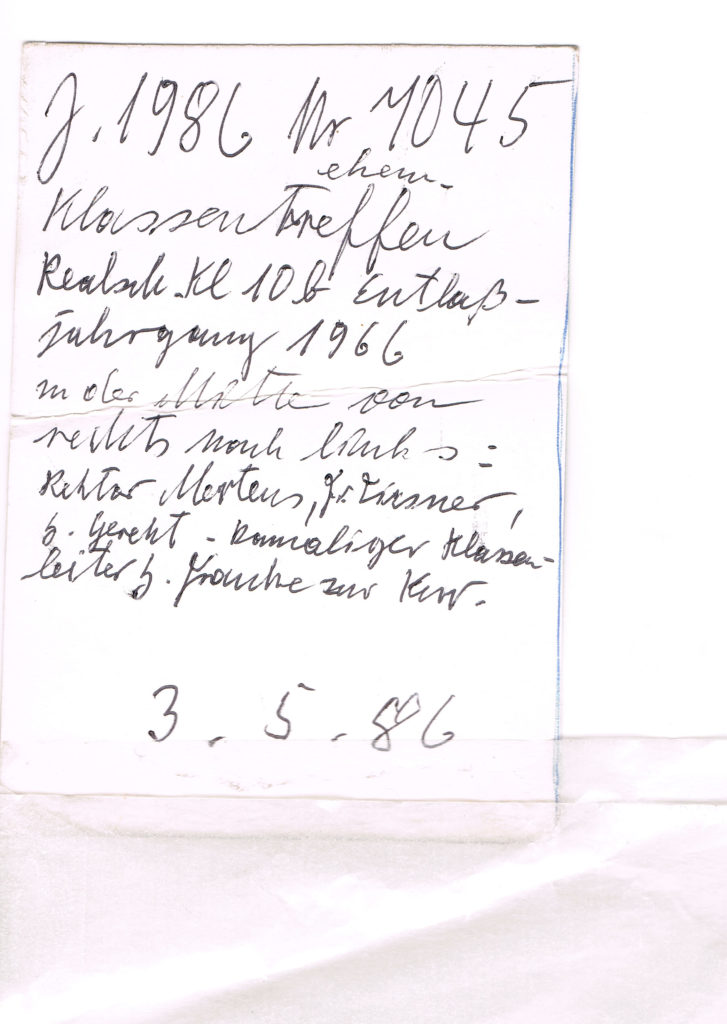 J. 1986 Nr 7045
ehem.
Klassentreffen
Realsch. Kl 10b Entlaß-
jahrgang 1966
in der Mitte von
rechts nach links:
Rektor Mertens, Fr.
H. Gereht - damaliger Klassen-
leiter H. Franke zur
3.5.86